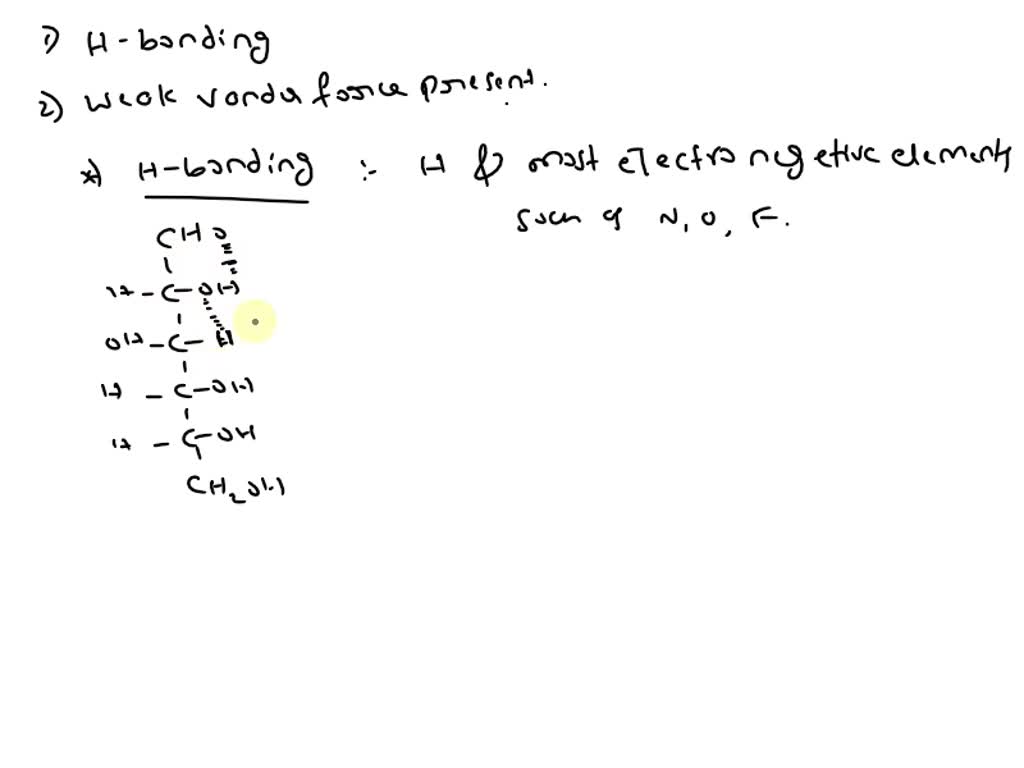 1) H-bonding
2) weak vanda force present.
*) H-bonding :- H & most electronegetive elements
such of N, O, F.
CHO
H-C-OH
OH-C-H
H-C-OH
H-C-OH
CH2OH